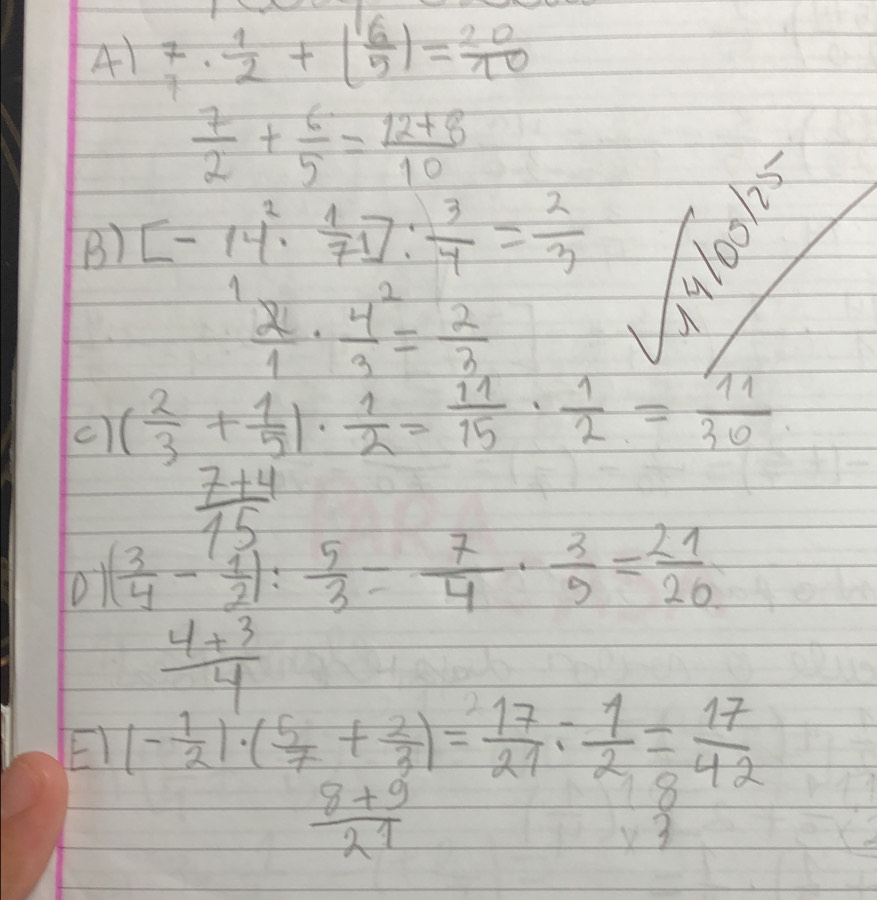 A) 7/7 · 1/2 + (6/5) = 20/10
7/2 + 6/5 = 12+8/10
B) [- 14² · 1/71] : 3/4 = 2/3
1 2/1 · 4²/3 = 2/3
14/00/25
C) (2/3 + 1/5) · 1/2 = 11/15 · 1/2 = 11/30
7+4/15
D) (3/4 - 1/2) : 5/3 = 7/4 · 3/5 = 21/20
4+3/4
E) (-1/2) · (5/7 + 2/3) = 17/21 : 1/2 = 17/42
8+9/21
18
x3